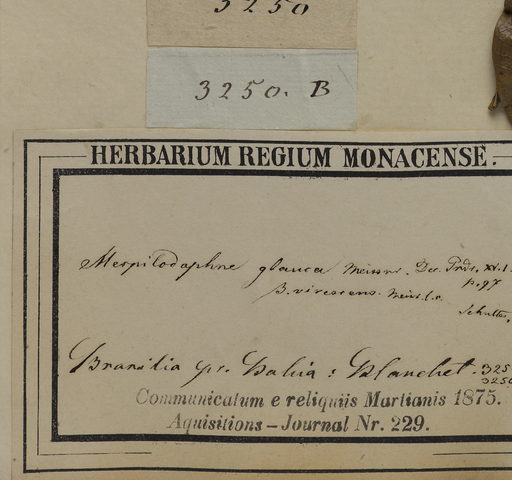 3250
3250. B
HERBARIUM REGIUM MONACENSE.
Mespilodaphne glauca Meissn. Dec. Prdr. XV. 1.
p. 97
B. virescens. Meiss. l. c.
Schultes,
Brasilia pr. Bahia: Blanchet. 325
3250
Communicatum e reliquiis Martianis 1875.
Aquisitions – Journal Nr. 229.